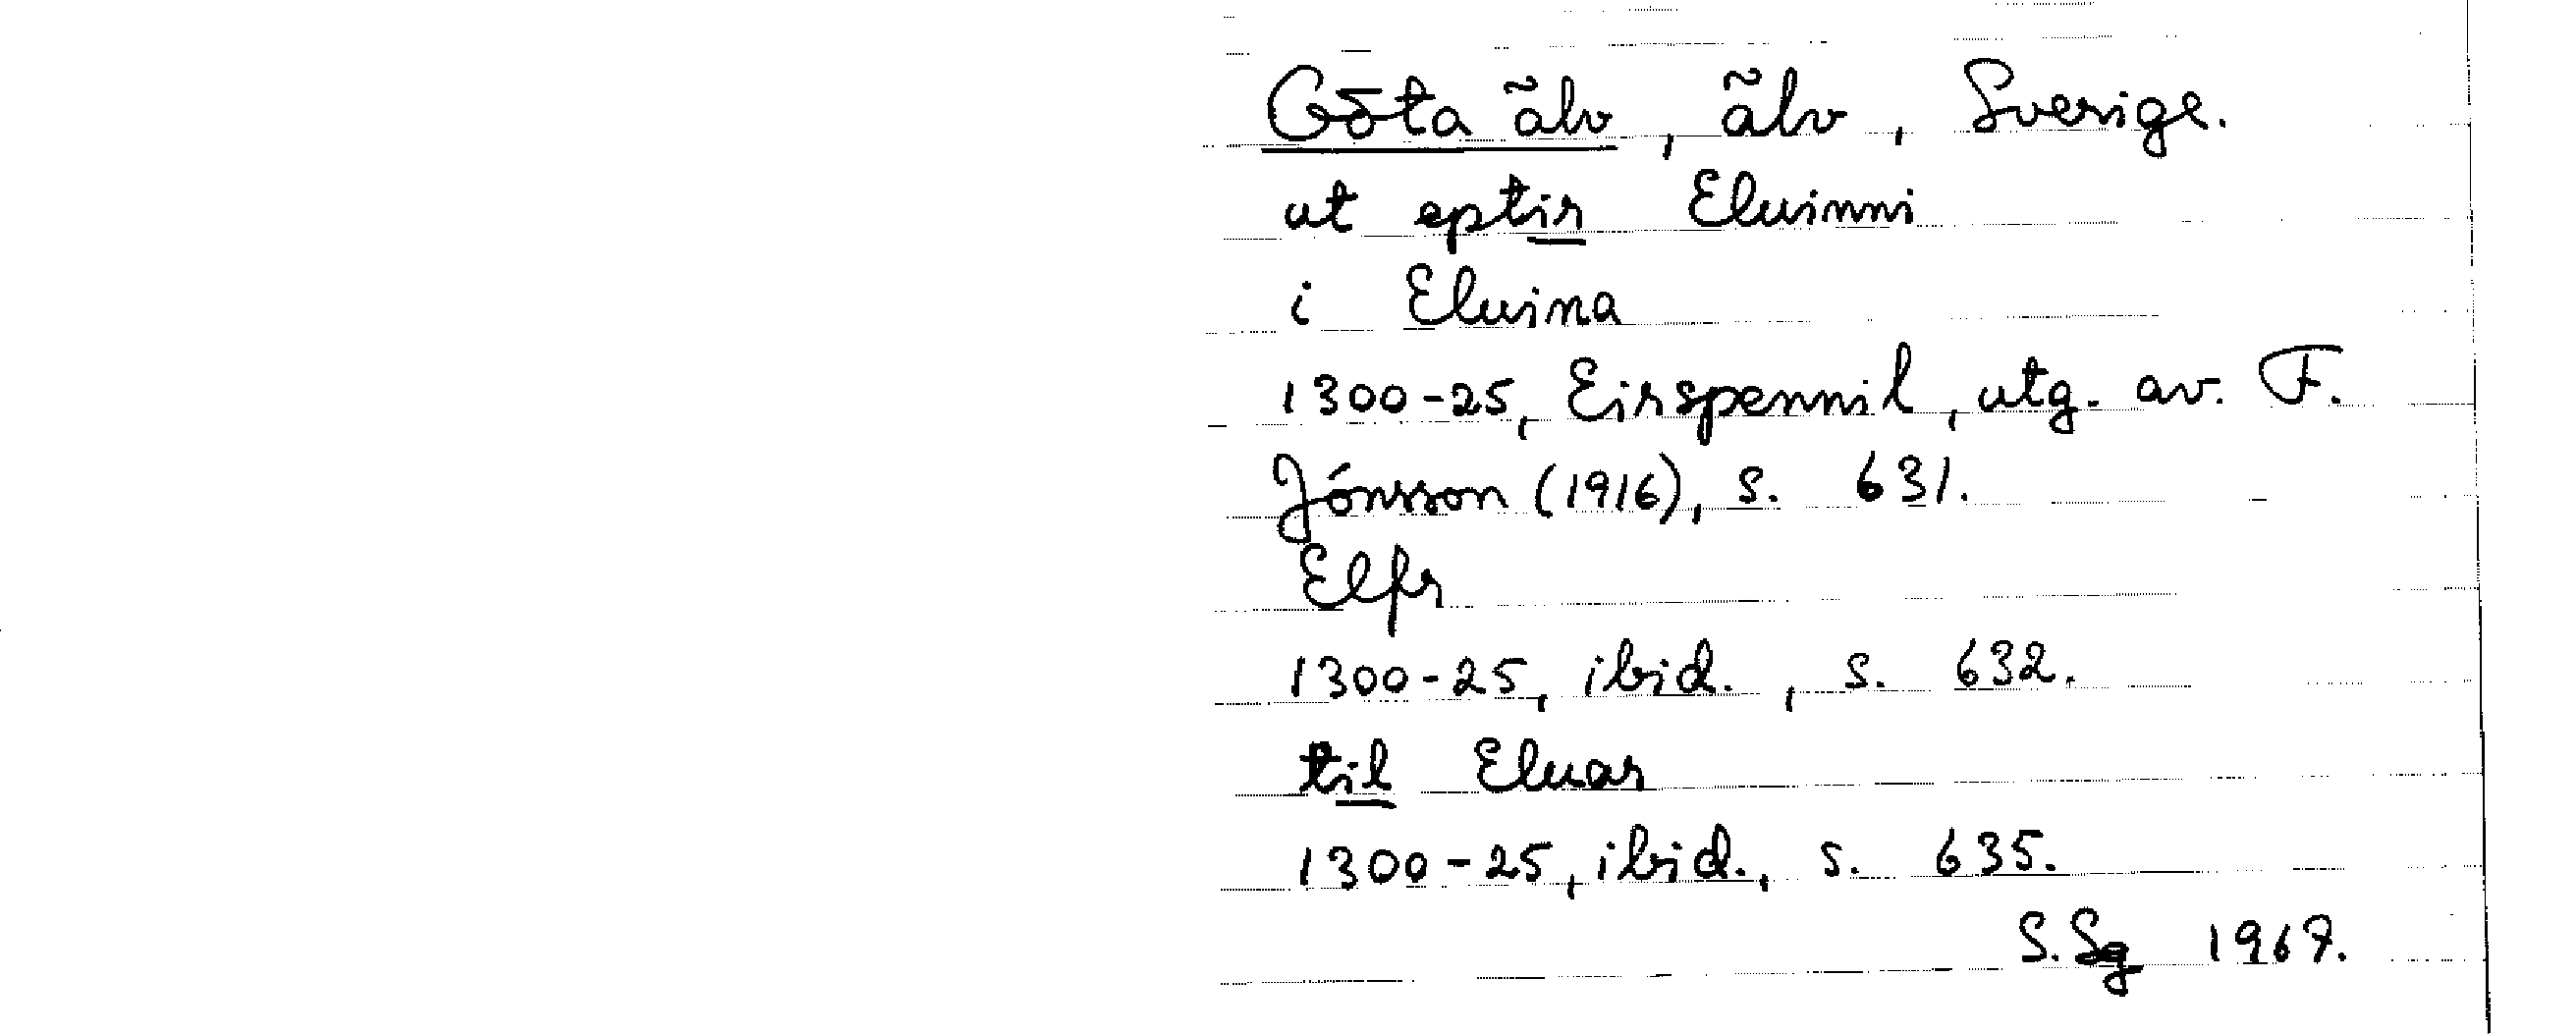 Göta älv, älv, Sverige.
ut eptir Eluinni
i Eluina
1300-25, Eirspennil, utg. av. F.
Jónsson (1916), s. 631.
Elfr
1300-25, ibid., s. 632.
til Eluar
1300-25, ibid., s. 635.
S.Sg 1967.